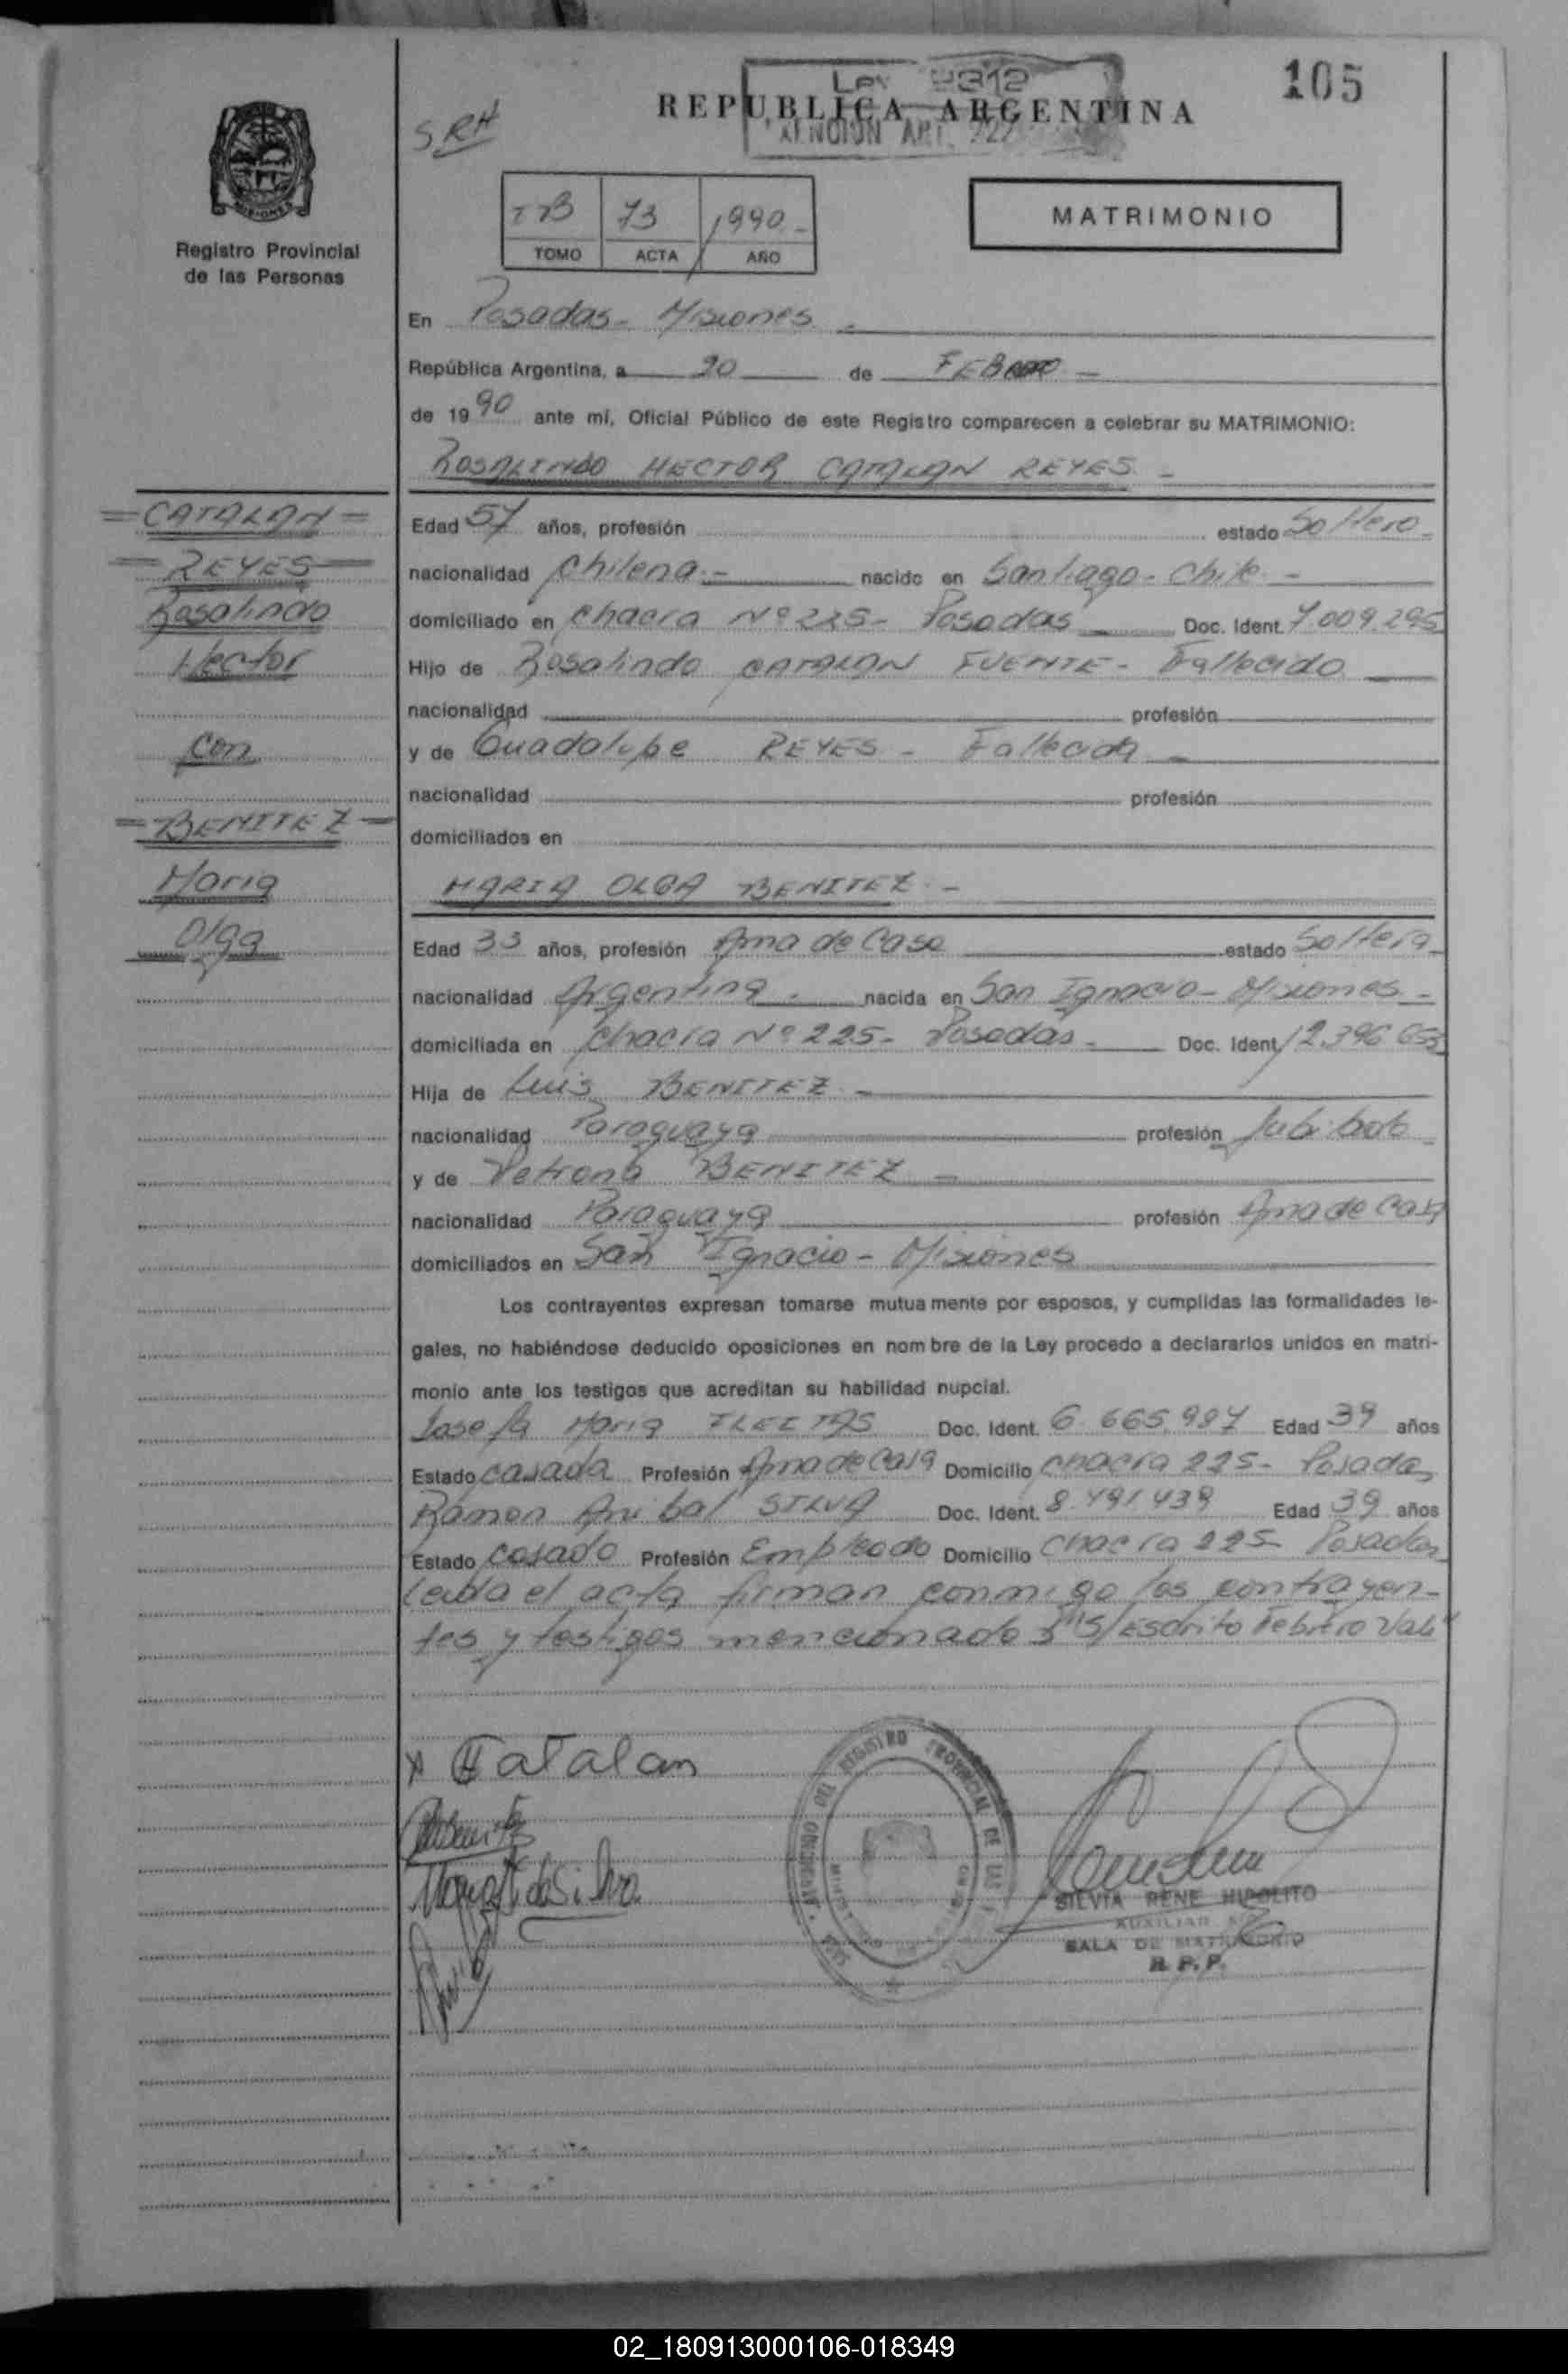 105
Ley
REPUBLICA ARGENTINA
SRH
73 1990.-
TOMO ACTA AÑO
MATRIMONIO
MISIONES
Registro Provincial
de las Personas
En Posadas - Misiones.-
República Argentina, a 20 de
de 1990 ante mí, Oficial Público de este Registro comparecen a celebrar su MATRIMONIO:
ROSALINDO HECTOR CATALAN REYES.-
=CATALAN=
=REYES=
Rosalindo
Hector
con
=BENITEZ=
Maria
Olga
Edad 57 años, profesión estado Soltero.
nacionalidad Chilena.- nacido en Santiago - Chile.-
domiciliado en Chacra Nº 225- Posadas Doc. Ident. 7.009.295
Hijo de Rosalindo CATALAN FUENTE - Fallecido
nacionalidad profesión
y de Guadalupe REYES - Fallecida
nacionalidad profesión
domiciliados en
MARIA OLGA BENITEZ.-
Edad 33 años, profesión Ama de Casa estado Soltera
nacionalidad Argentina.- nacida en San Ignacio - Misiones -
domiciliada en Chacra Nº 225- Posadas - Doc. Ident. 12.396.
Hija de Luis BENITEZ.-
nacionalidad Paraguaya profesión Jubilado
y de Petrona BENITEZ -
nacionalidad Paraguaya profesión Ama de Casa
domiciliados en San Ignacio - Misiones
Los contrayentes expresan tomarse mutuamente por esposos, y cumplidas las formalidades le-
gales, no habiéndose deducido oposiciones en nombre de la Ley procedo a declararlos unidos en matri-
monio ante los testigos que acreditan su habilidad nupcial.
Josefa Maria FLEITAS Doc. Ident. 6.665.987 Edad 39 años
Estado casada Profesión Ama de Casa Domicilio chacra 225- Posadas
Ramon Anibal SILVA Doc. Ident. 8.491.439 Edad 39 años
Estado Casado Profesión Empleado Domicilio Chacra 225- Posadas
Leida el acta firman conmigo los contrayen-
tes y testigos mencionados "S/Escrito Febrero Vale"
x Catalan
SILVIA RENE HIPOLITO
AUXILIAR
SALA DE MATRIMONIO
R.P.P.
02_180913000106-018349